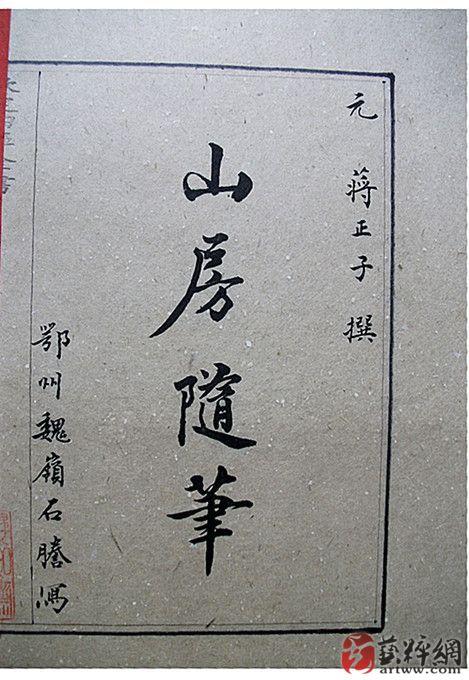 元 蔣正子 撰
山房隨筆
鄂州魏嶺石謄寫
藝粹網
artww.com